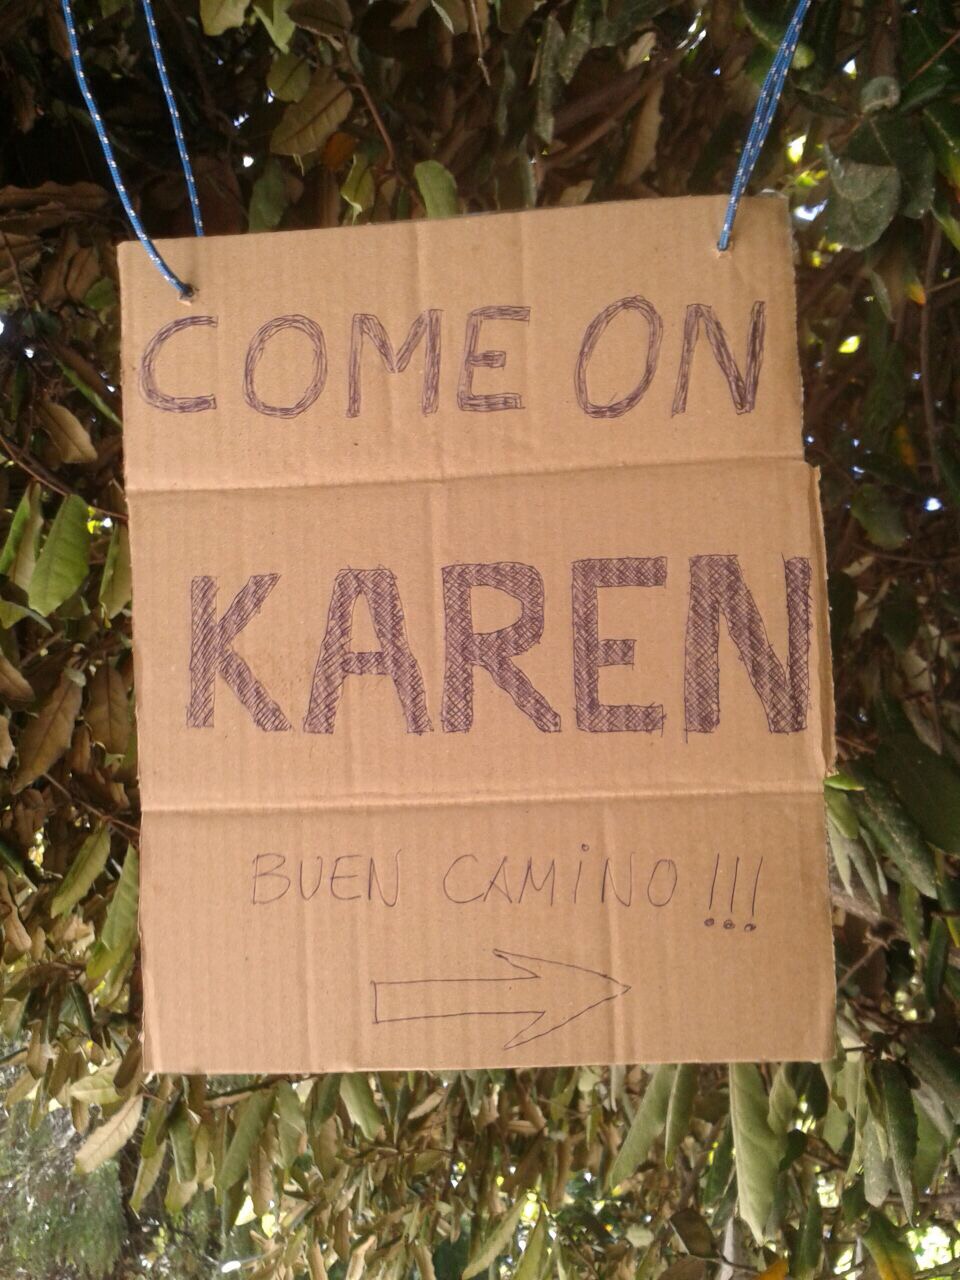 COME ON
KAREN
BUEN CAMiNO!!!